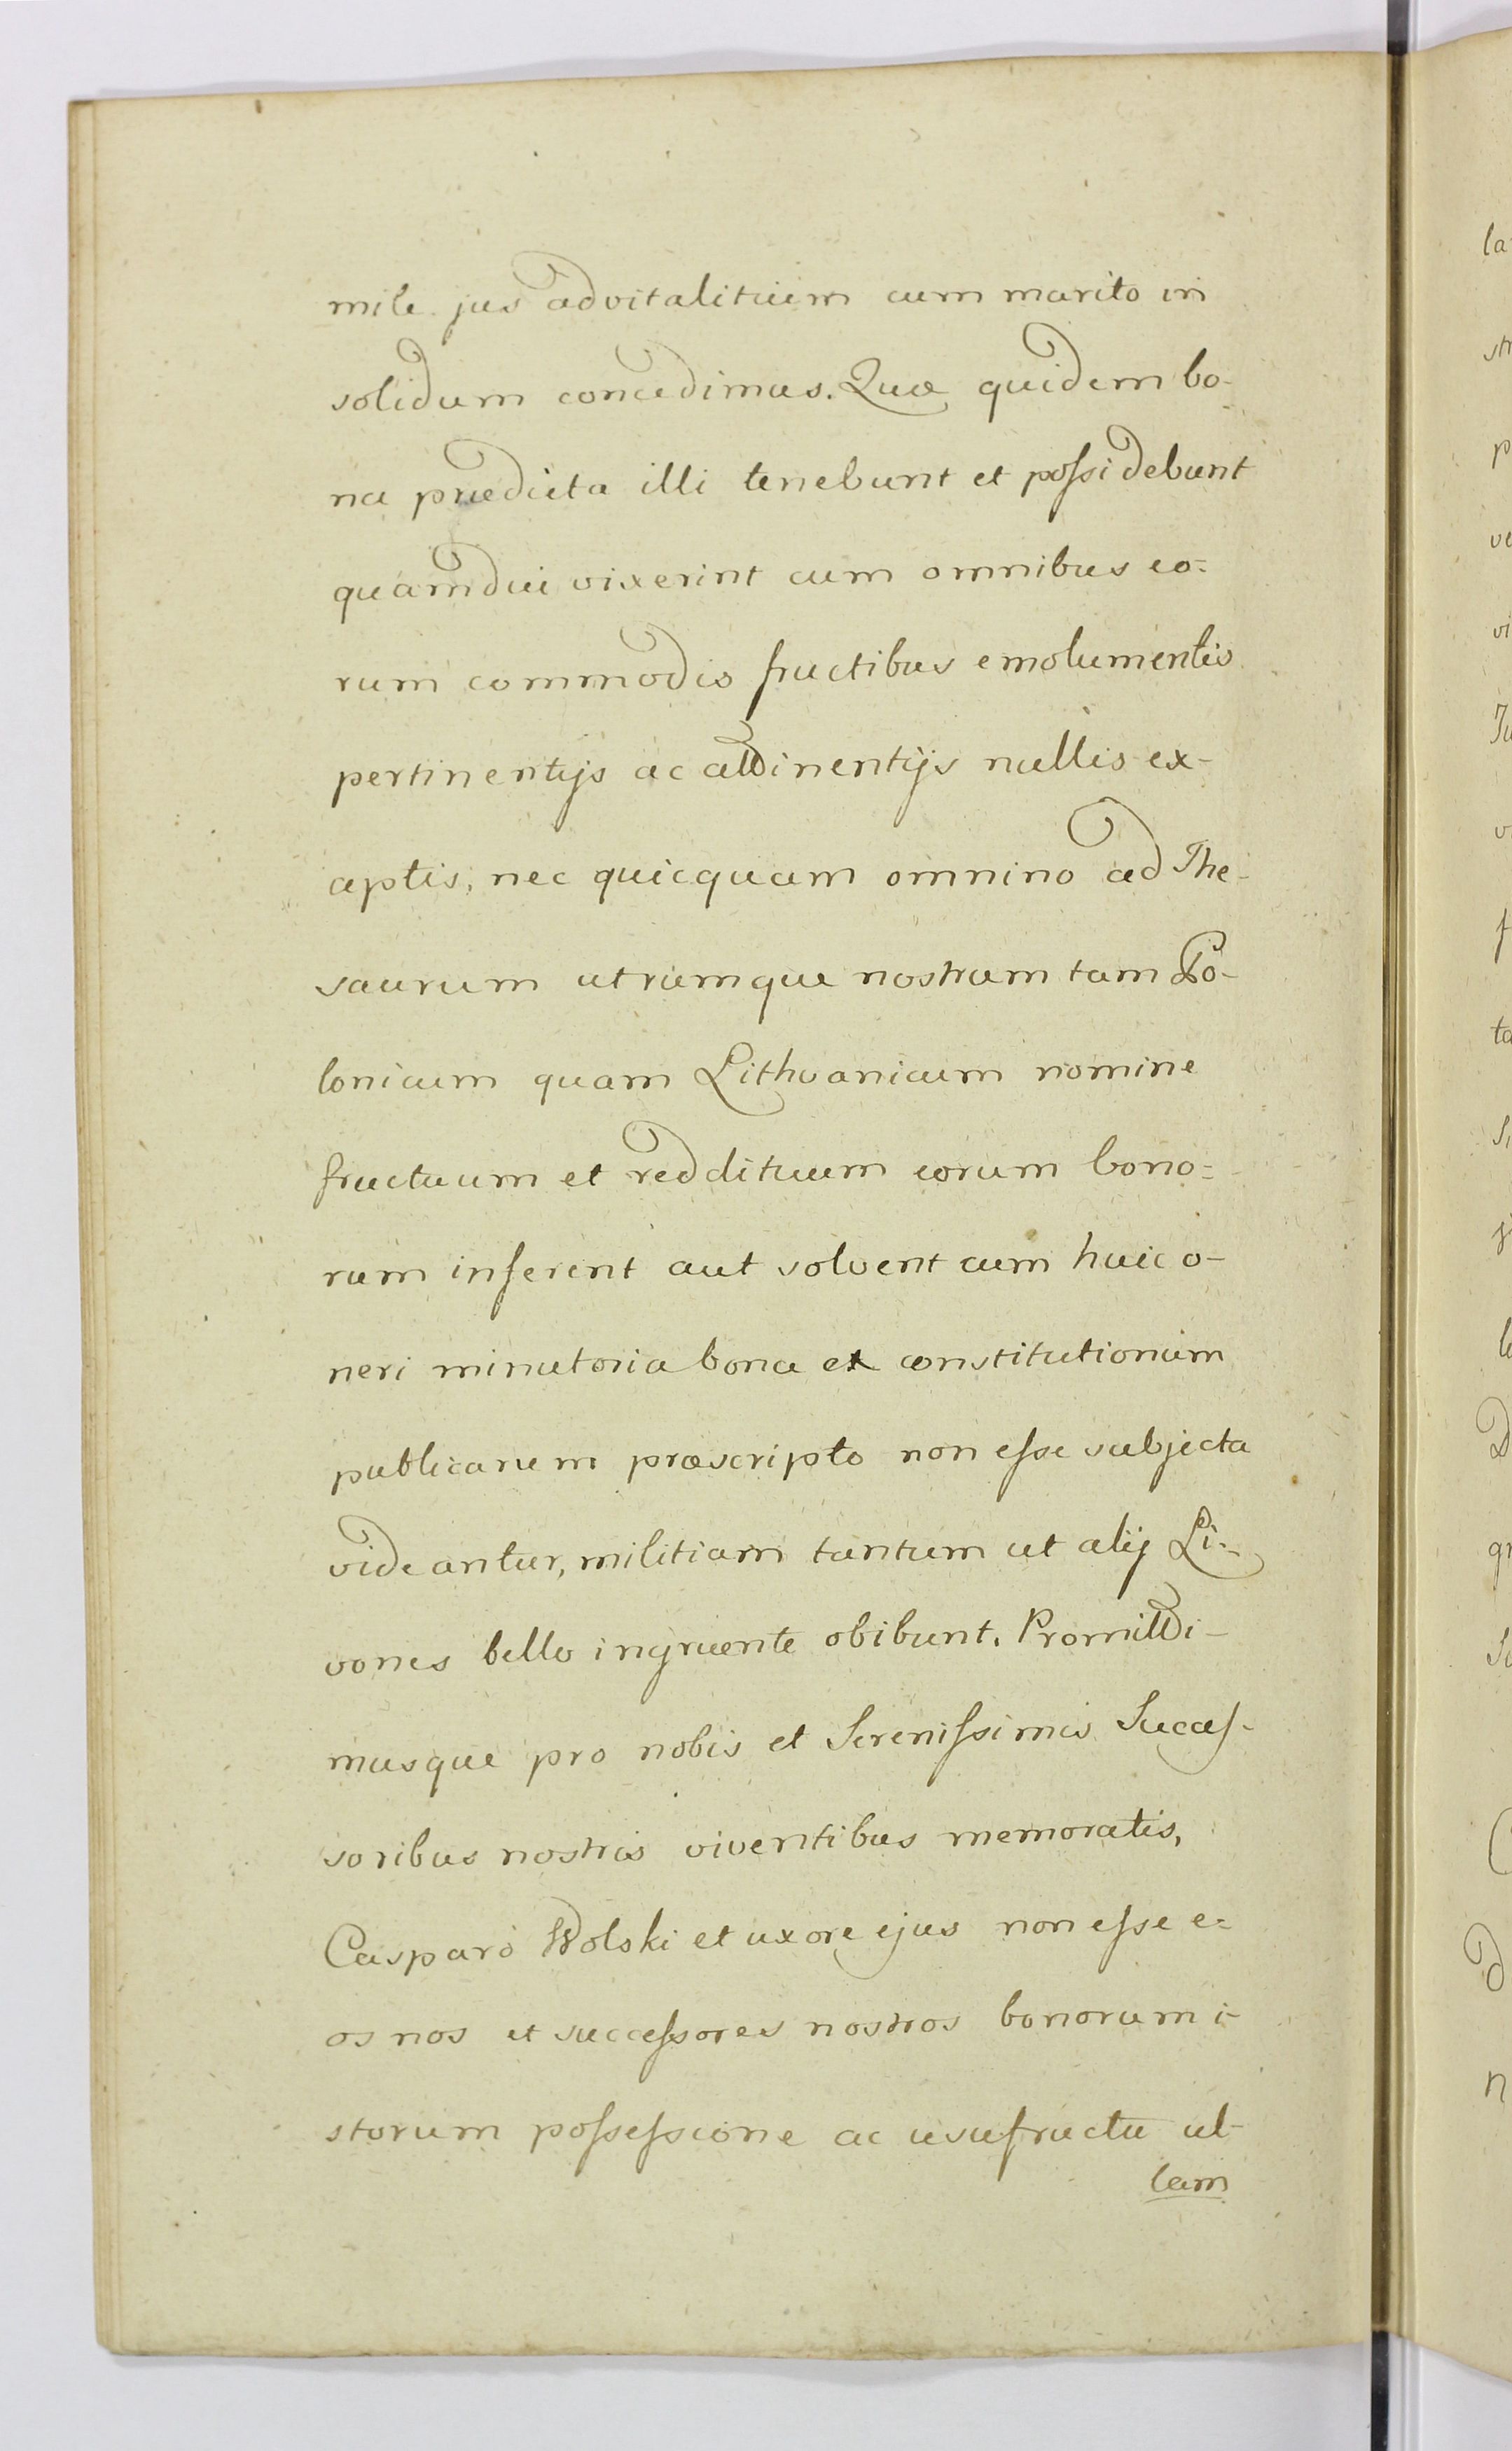 mile jus advitalitium cum marito in
solidum concedimus. Quæ quidem bo-
na prædicta illi tenebunt et possidebunt
quamdiu vixerint cum omnibus eo=
rum commodis fructibus emolumentis
pertinentijs ac attinentijs nullis ex-
ceptis, nec quicquam omnino ad The-
saurum utrumque nostrum tam Po-
lonicum quam Lithvanicum nomine
fructuum et reddituum eorum bono=
rum inferent aut solvent cum huic o-
neri minutoria bona ex constitutionum
publicarum præscripto non esse subjecta
videantur, militiam tantum ut alij Li-
vones bello ingruente obibunt. Promitti-
musque pro nobis et Serenissimis Succes-
soribus nostris viventibus memoratis,
Casparo Wolski et uxore ejus non esse e=
os nos et successores nostros bonorum i-
storum possessione ac usufructu ul-
lam
la
p
ve
vi
f
ta
D
n